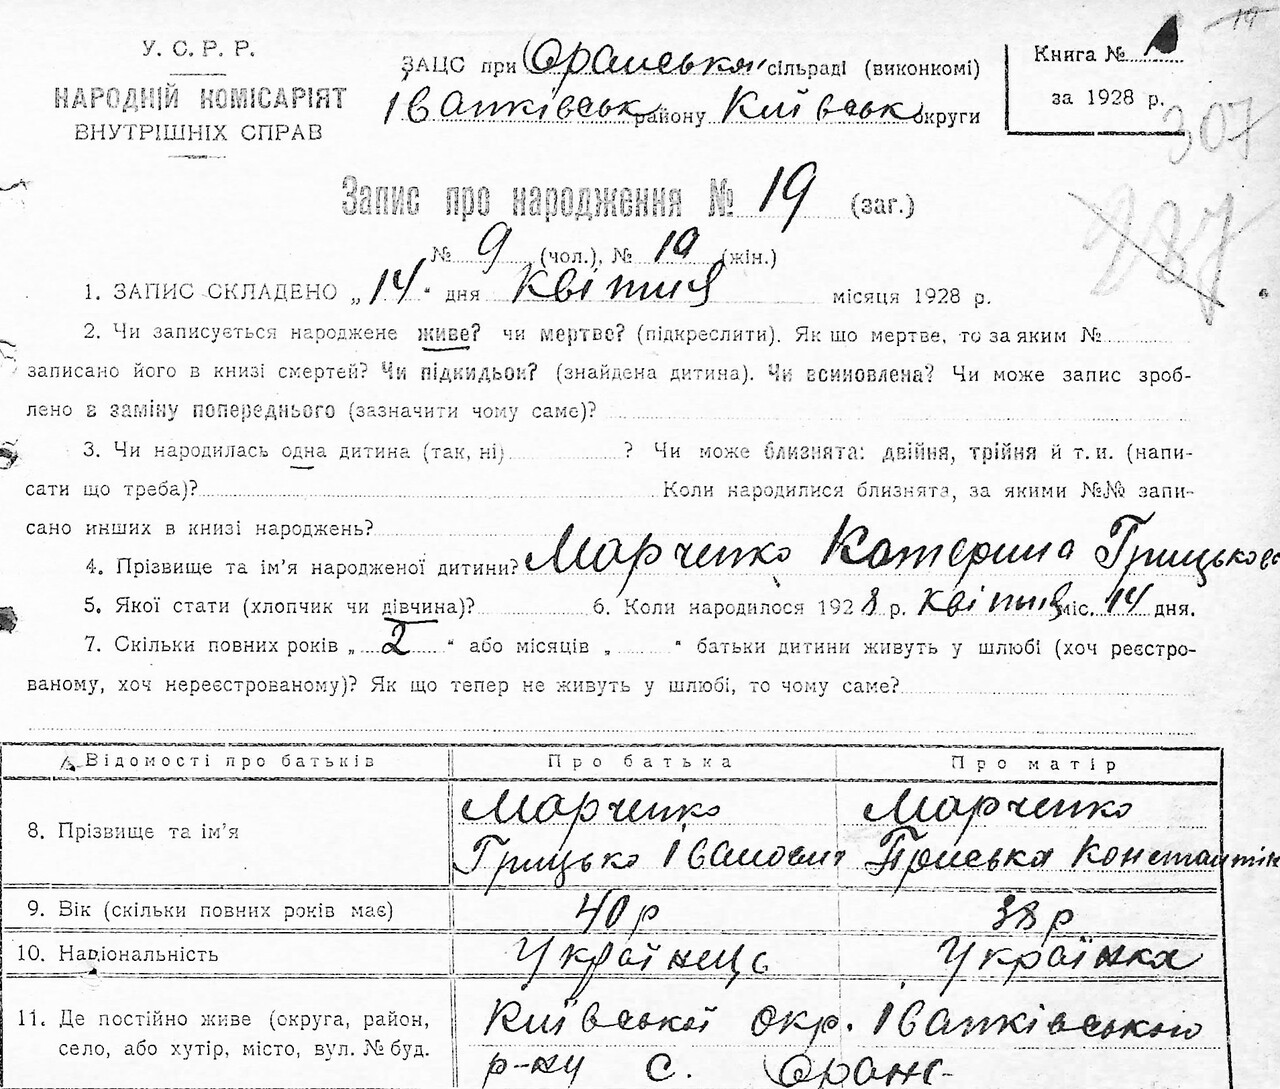 У. С. Р. Р.
НАРОДНІЙ КОМІСАРІЯТ
ВНУТРІШНІХ СПРАВ
ЗАЦС при Оранській сільраді (виконкомі)
Іванківськ району Київськ округи
Книга №
за 1928 р.
19
307
287
Запис про народження № 19 (заг.)
№ 9 (чол.), № 10 (жін.)
1. ЗАПИС СКЛАДЕНО „14" дня квітня місяця 1928 р.
2. Чи записується народжене живе? чи мертве? (підкреслити). Як що мертве, то за яким №
записано його в книзі смертей? Чи підкидьок? (знайдена дитина). Чи всиновлена? Чи може запис зроб-
лено в заміну попереднього (зазначити чому саме)?
3. Чи народилась одна дитина (так, ні) ? Чи може близнята: двійня, трійня й т. и. (напи-
сати що треба)? Коли народилися близнята, за якими №№ запи-
сано инших в книзі народжень?
4. Прізвище та ім'я народженої дитини? Марченко Катерина Грицьков
5. Якої стати (хлопчик чи дівчина)? 6. Коли народилося 1928 р. квітня міс. 14 дня.
7. Скільки повних років „ 2 " або місяців „ " батьки дитини живуть у шлюбі (хоч реєстро-
ваному, хоч нереєстрованому)? Як що тепер не живуть у шлюбі, то чому саме?
Відомості про батьків Про батька Про матір
8. Прізвище та ім'я
Марченко Грицько Іванович
Марченко Приська Константин
9. Вік (скільки повних років має) 40 р 38 р
10. Національність Українець Українка
11. Де постійно живе (округа, район,
село, або хутір, місто, вул. № буд.
Київської окр. Іванківського
р-ну с. Оране